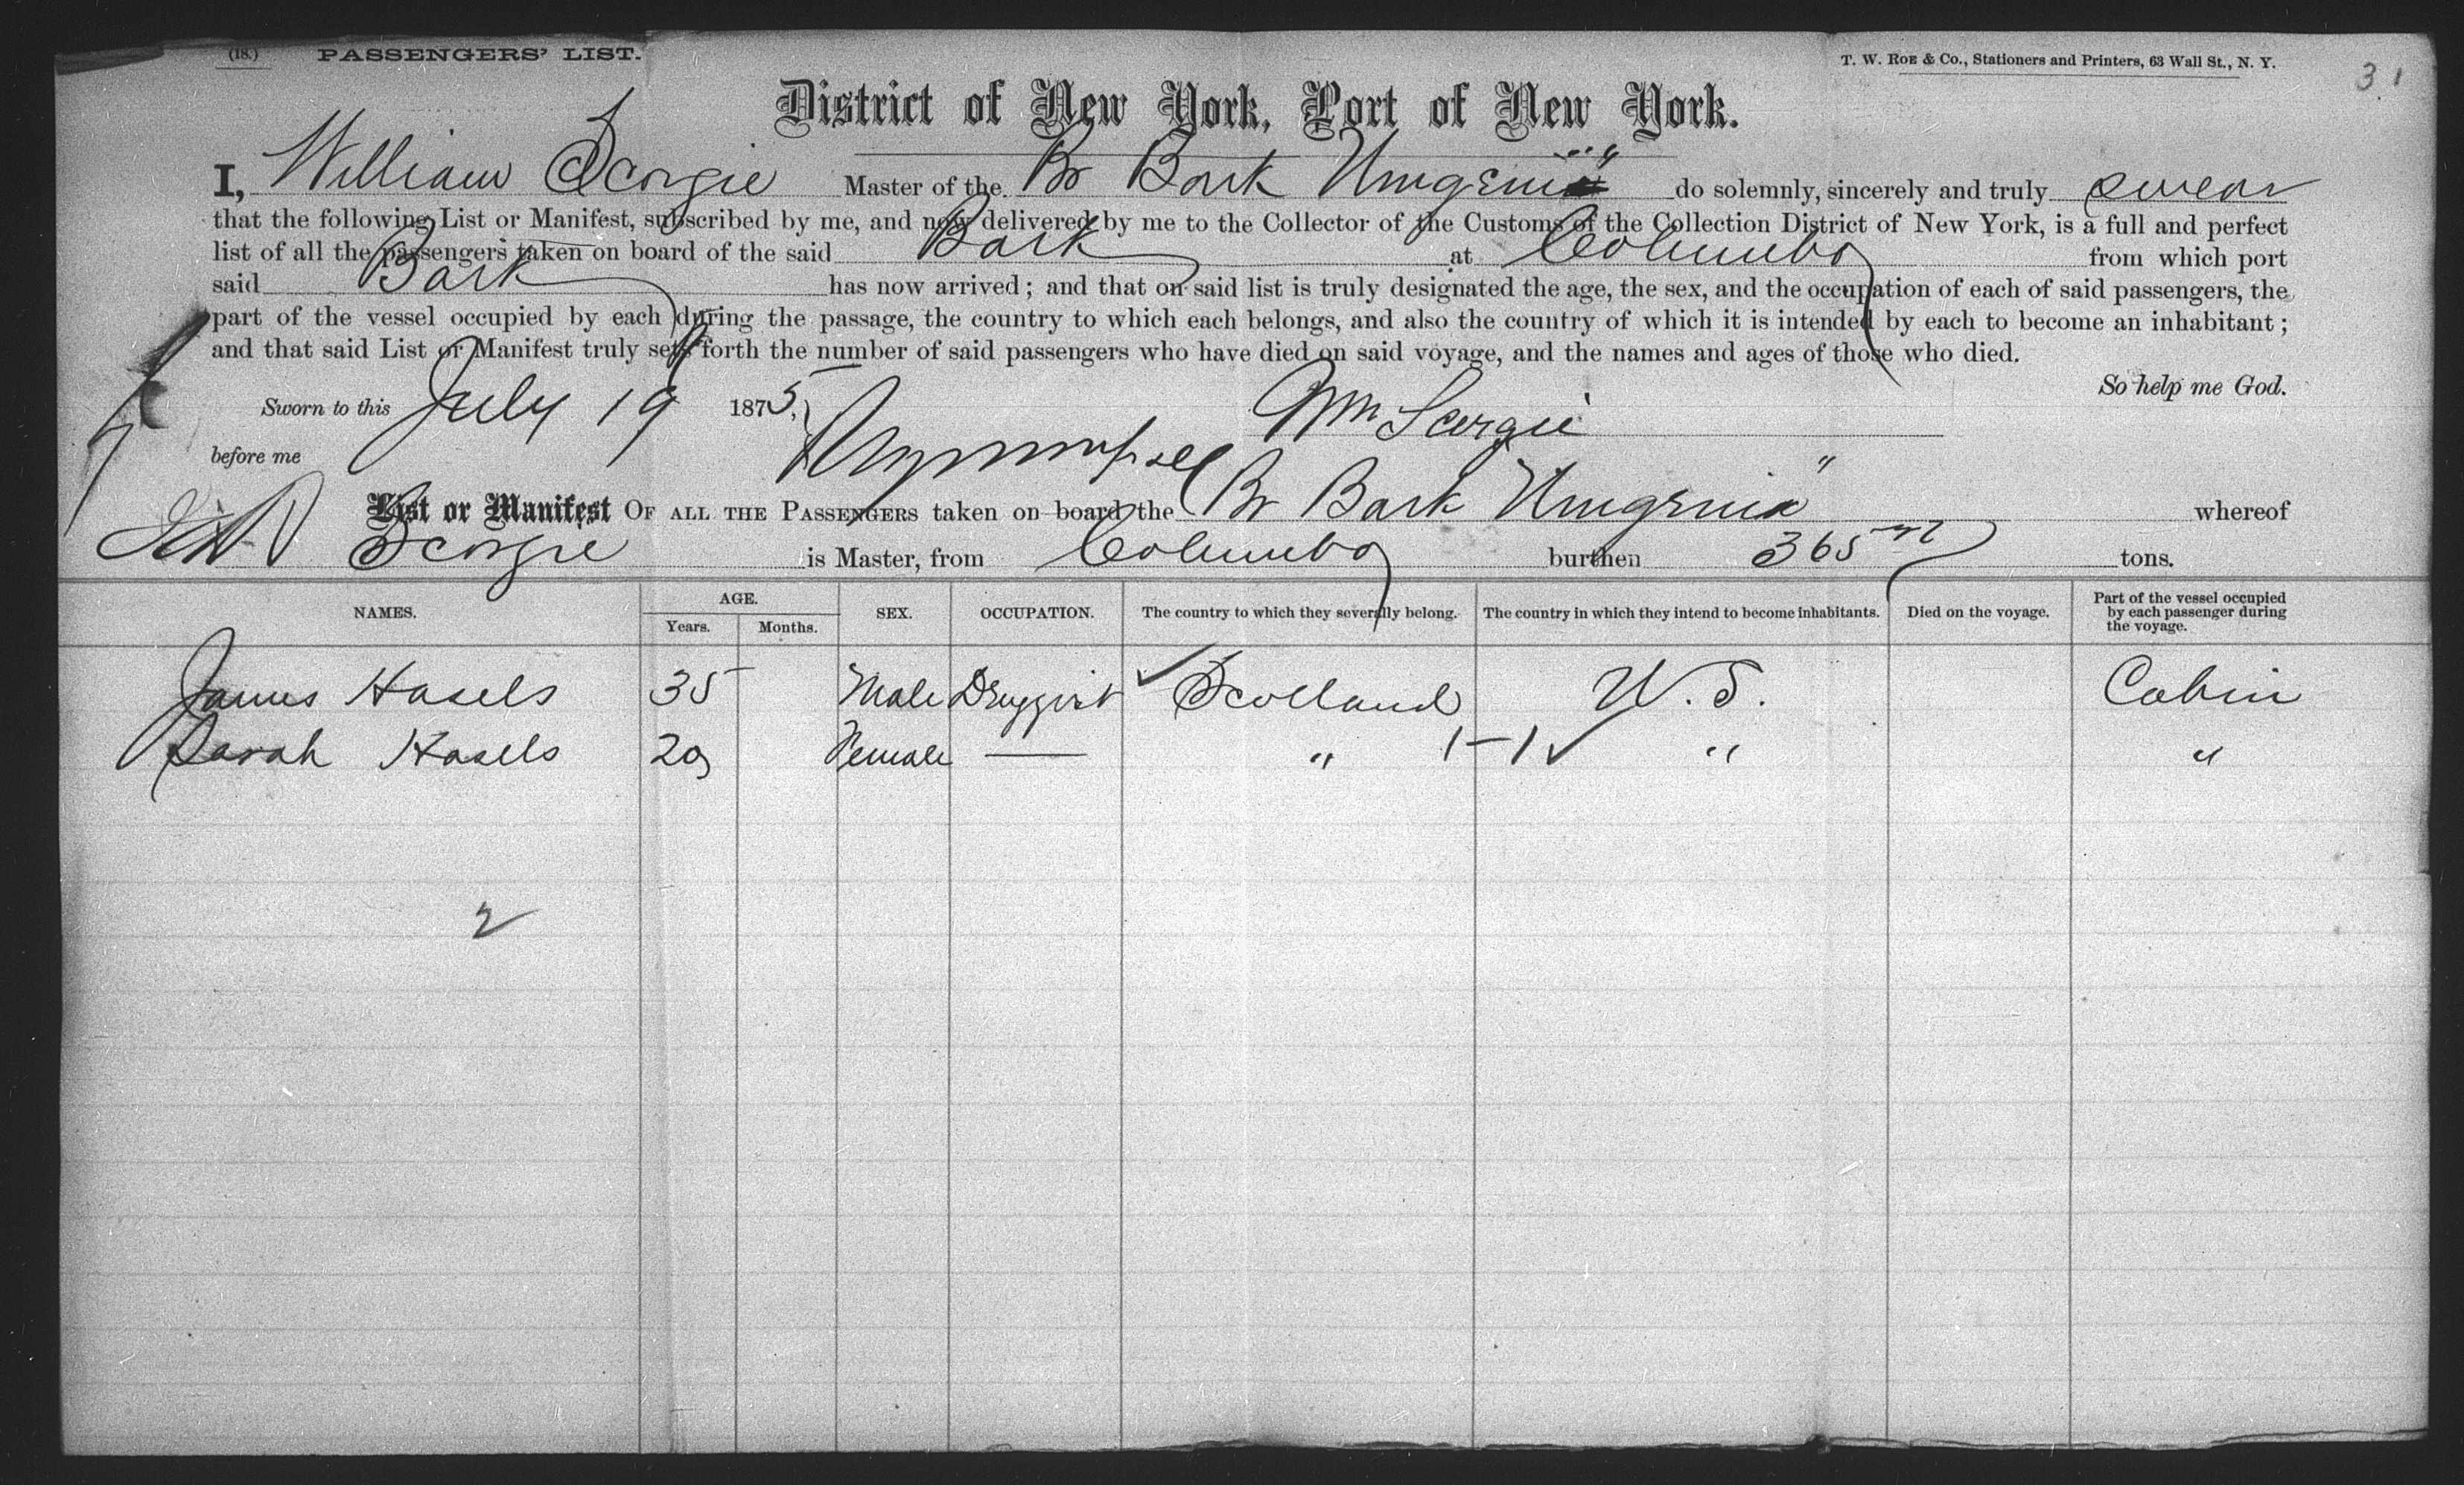 (18.) PASSENGERS' LIST. T. W. ROE & CO., Stationers and Printers, 63 Wall St., N. Y. 31
District of New York, Port of New York.
I, William Scorgie Master of the Br Bark Umgenia" do solemnly, sincerely and truly swear
that the following List or Manifest, subscribed by me, and now delivered by me to the Collector of the Customs of the Collection District of New York, is a full and perfect
list of all the passengers taken on board of the said Bark at Columbo from which port
said Bark has now arrived; and that on said list is truly designated the age, the sex, and the occupation of each of said passengers, the
part of the vessel occupied by each during the passage, the country to which each belongs, and also the country of which it is intended by each to become an inhabitant;
and that said List or Manifest truly sets forth the number of said passengers who have died on said voyage, and the names and ages of those who died.
So help me God.
Sworn to this July 19 1875, Wm Scorgie
before me
List or Manifest OF ALL THE PASSENGERS taken on board the Br Bark Umgenia" whereof
Scorgie is Master, from Columbo burthen 365 tons.
NAMES. AGE. Years. Months. SEX. OCCUPATION. The country to which they severally belong. The country in which they intend to become inhabitants. Died on the voyage. Part of the vessel occupied by each passenger during the voyage.
James Hasels 35 Male Druggist ✓ Scotland U.S. Cabin
Sarah Hasels 29 Female — " 1-1✓ " "
2